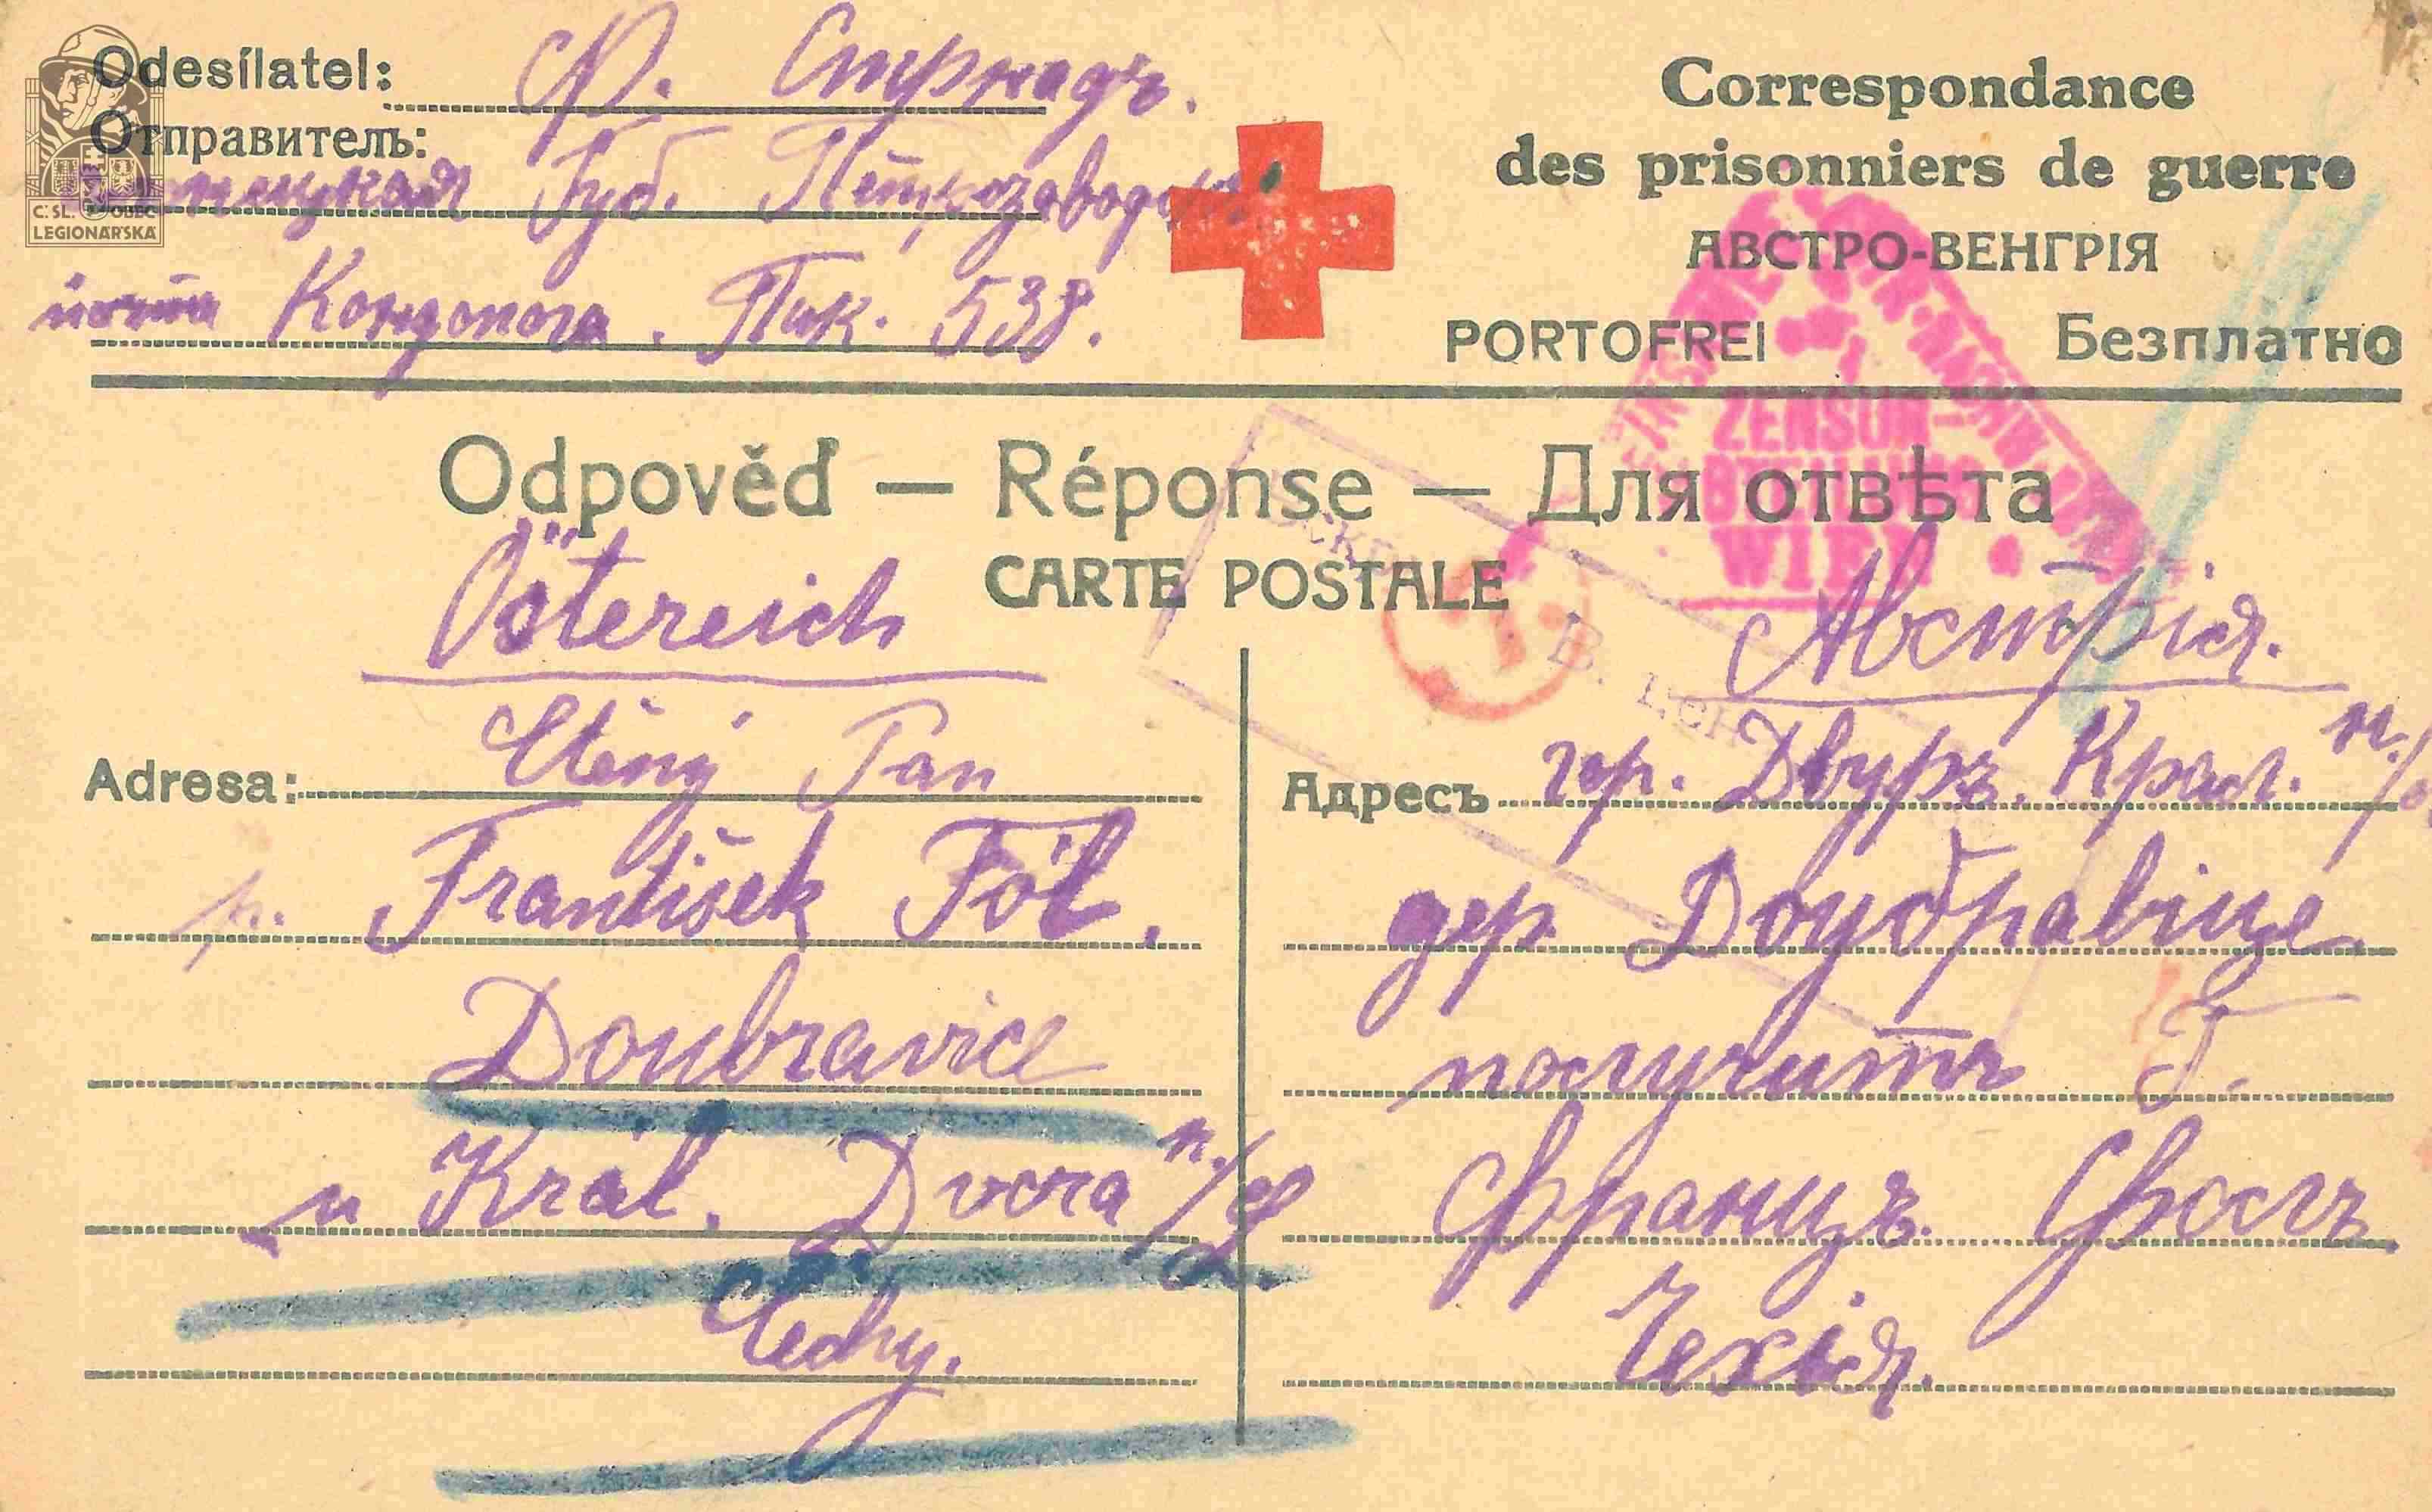 Odesílatel: Ф. Стрнадъ.
Отправитель:
Губ. Петрозаводск
почта Кондопога. Пик. 538.
Č: SL. OBEC
LEGIONÁŘSKÁ
Correspondance
des prisonniers de guerre
АВСТРО-ВЕНГРІЯ
PORTOFREI Безплатно
ZENSUR-
WIEN
Odpověď — Réponse — Для отвѣта
CARTE POSTALE
Östereich
Ctěný Pan
Adresa:
p. František Föl.
Doubravice
u Král. Dvora n./L.
Čechy.
Австрія.
Адресъ гор. Двуръ. Крал. н./
дер Доубравице
получитъ Г.
Францъ. Фолъ.
Чехія.